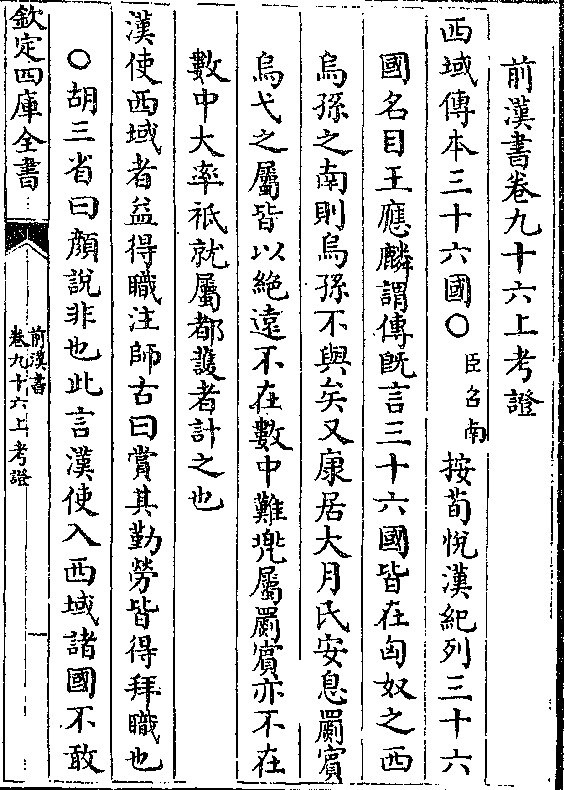 前漢書卷九十六上考證
西域傳本三十六國○臣召南按荀悅漢紀列三十六
國名目王應麟謂傳既言三十六國皆在匈奴之西
烏孫之南則烏孫不與矣又康居大月氏安息罽賓
烏弋之屬皆以絕遠不在數中難兜屬罽賓亦不在
數中大率祇就屬都護者計之也
漢使西域者益得職注師古曰賞其勤勞皆得拜職也
○胡三省曰顏說非也此言漢使入西域諸國不敢
欽定四庫全書
前漢書
卷九十六上考證
一